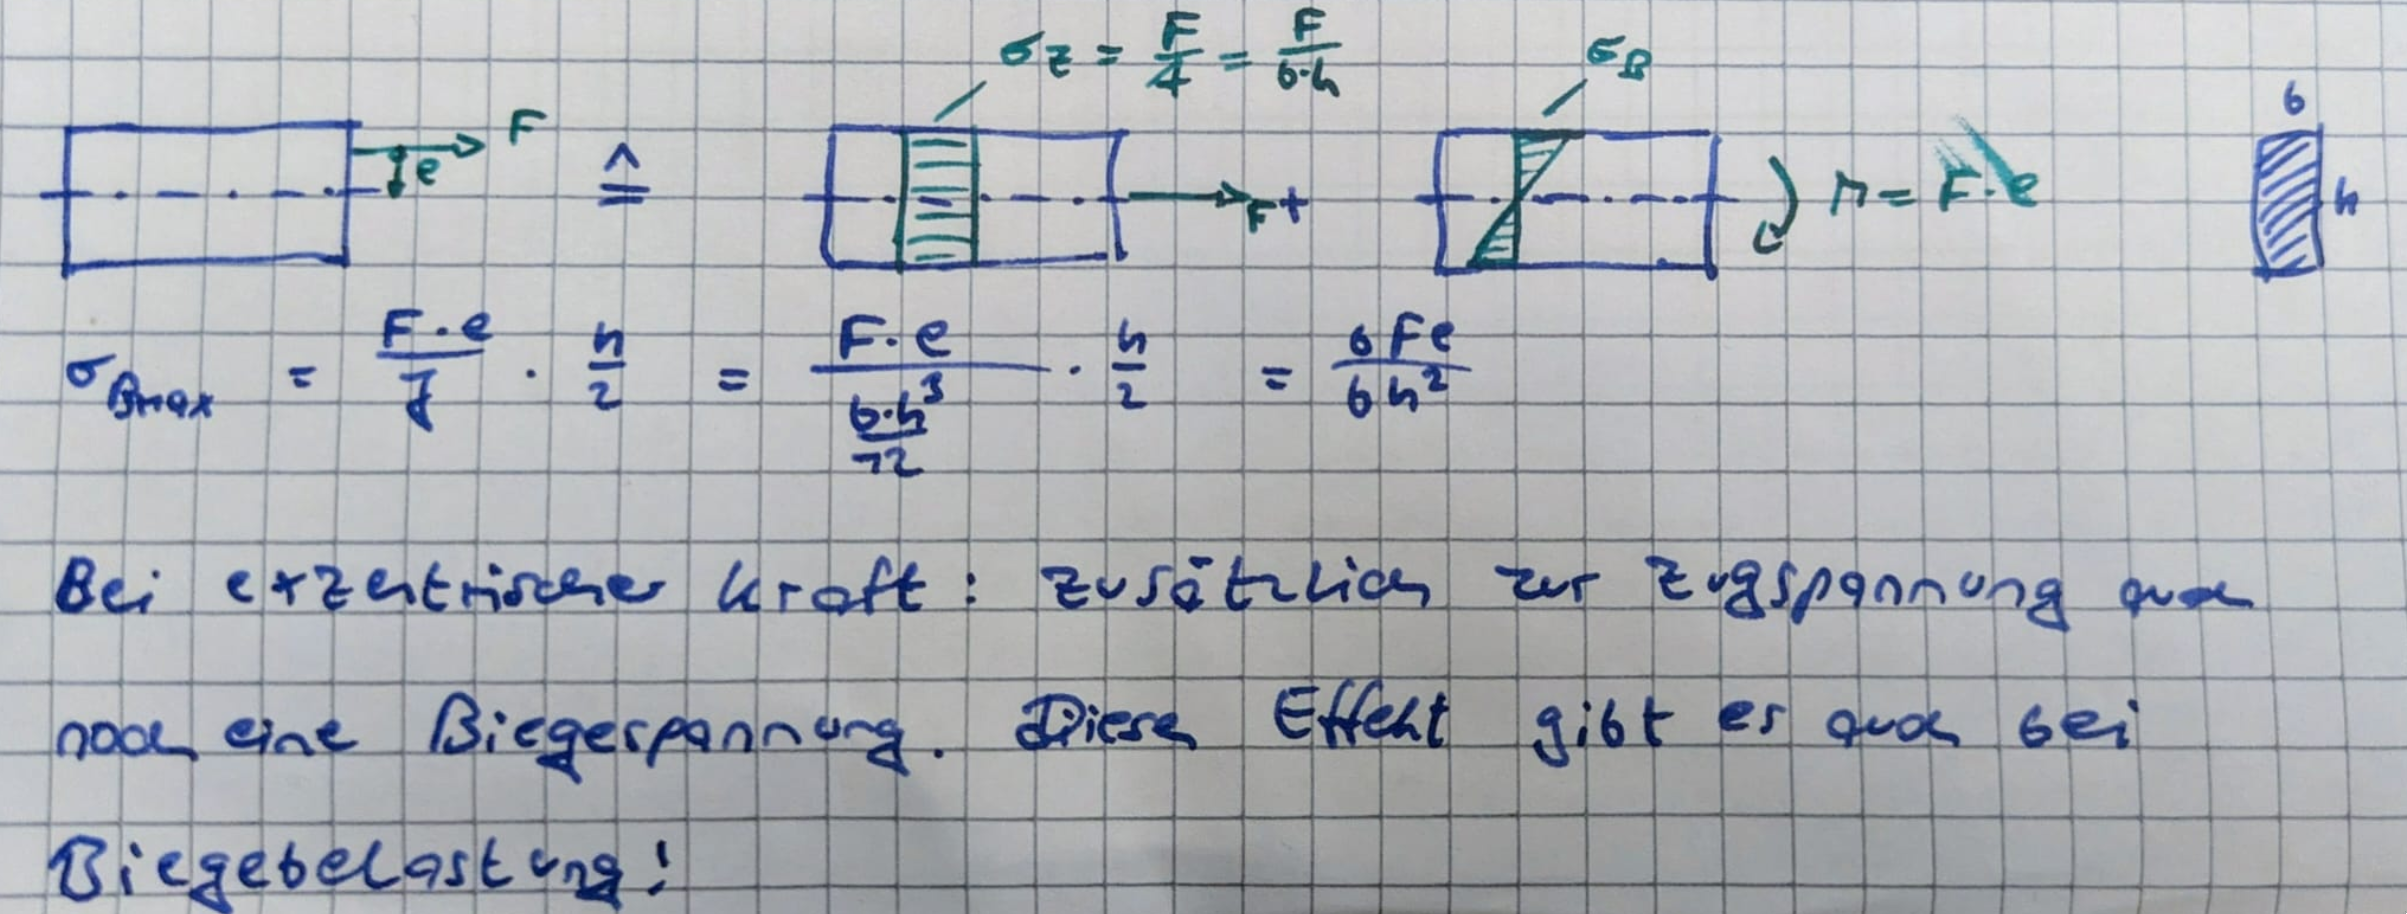 σ_Z = F/A = F/(b·h)
σ_B
b
F
e
≙
F +
M = F·e
h
σ_Bmax = (F·e)/J · h/2 = (F·e)/((b·h³)/12) · h/2 = (6Fe)/(bh²)
Bei exzentrischer Kraft: zusätzlich zur Zugspannung auch
noch eine Biegespannung. Diesen Effekt gibt es auch bei
Biegebelastung!